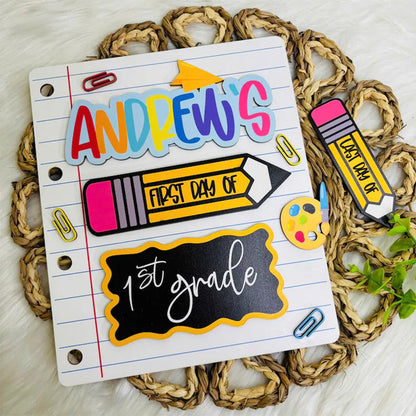 ANDREW'S
FIRST DAY OF
1st grade
LAST DAY OF